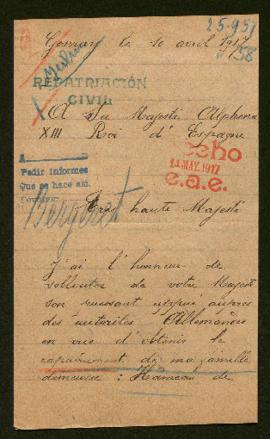 25.951
Gosnay le 10 avril 1917
158
REPATRIACIÓN
CIVIL
A Sa Majesté Alphonse
XIII Roi d'Espagne
Hecho
11 MAY. 1917
e.a.e.
A
Pedir informes
Que se hace así.
Bergeret
Très haute Majesté
J'ai l'honneur de
solliciter de votre Majesté
son puissant appui auprès
des autorités Allemandes
en vue d'obtenir le
rapatriement de ma famille
demeurée : Hameau de